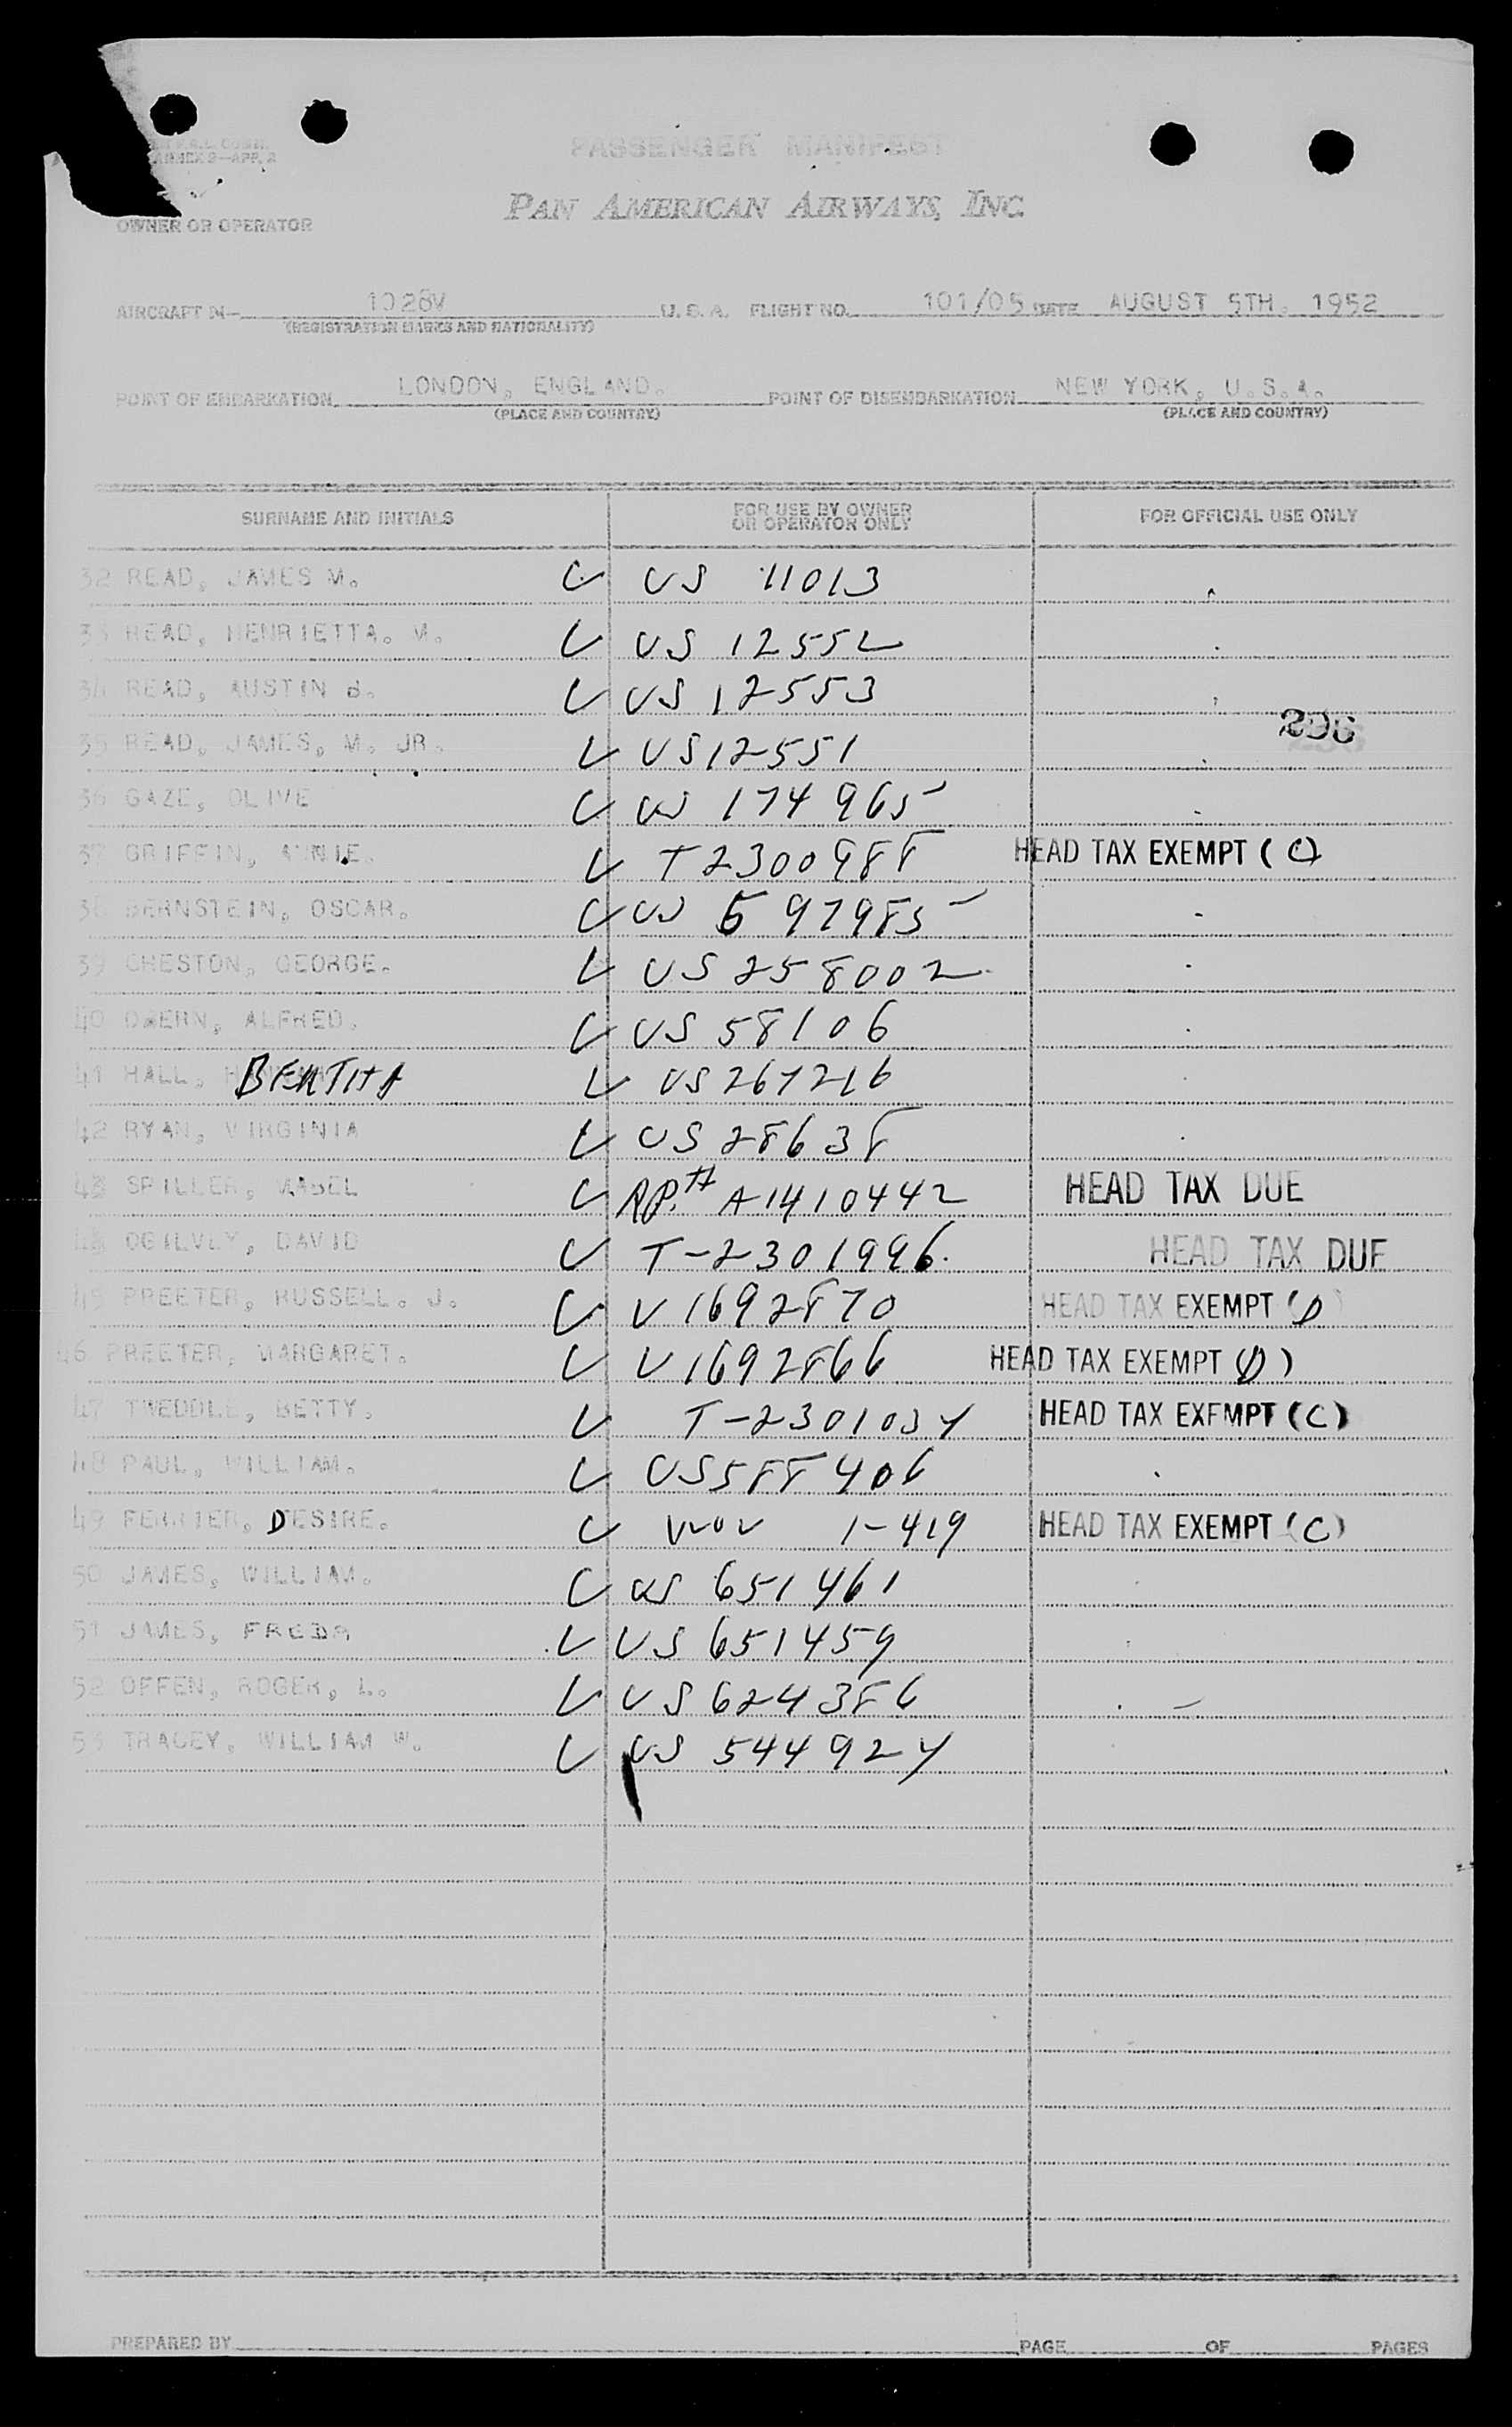 ANNEX 9—APP. 2
PASSENGER MANIFEST
PAN AMERICAN AIRWAYS, INC.
OWNER OR OPERATOR
AIRCRAFT N— 1028V U.S.A. FLIGHT NO. 101/05 DATE AUGUST 5TH. 1952
(REGISTRATION MARKS AND NATIONALITY)
POINT OF EMBARKATION LONDON, ENGLAND. POINT OF DISEMBARKATION NEW YORK, U.S.A.
(PLACE AND COUNTRY) (PLACE AND COUNTRY)
SURNAME AND INITIALS FOR USE BY OWNER OR OPERATOR ONLY FOR OFFICIAL USE ONLY
32 READ, JAMES M. US 11013
33 READ, HENRIETTA. M. US 12552
34 READ, AUSTIN US 12553
296
35 READ, JAMES, M. JR. US 12551
36 GAZE, OLIVE US 174965
37 GRIFFIN, ANNIE. T2300988 HEAD TAX EXEMPT (C)
38 BERNSTEIN, OSCAR. US 597985
39 CHESTON, GEORGE. US 258002
40 ALFRED. US 58106
41 HALL, BERTHA US 267216
42 RYAN, VIRGINIA US 28638
43 SPILLER, MABEL A1410442 HEAD TAX DUE
44 OGILVEY, DAVID T-2301996. HEAD TAX DUE
45 PREETER, RUSSELL. J. V 1692870 HEAD TAX EXEMPT (D)
46 PREETER, MARGARET. V 1692866 HEAD TAX EXEMPT (D)
47 TWEDDLE, BETTY. T-2301034 HEAD TAX EXEMPT (C)
48 PAUL, WILLIAM. US 588406
49 FERRIER, DESIRE. 1-419 HEAD TAX EXEMPT (C)
50 JAMES, WILLIAM. US 651461
51 JAMES, FREDA US 651459
52 OFFEN, ROGER, L. US 624386
53 TRACEY, WILLIAM W. US 544924
PREPARED BY PAGE OF PAGES